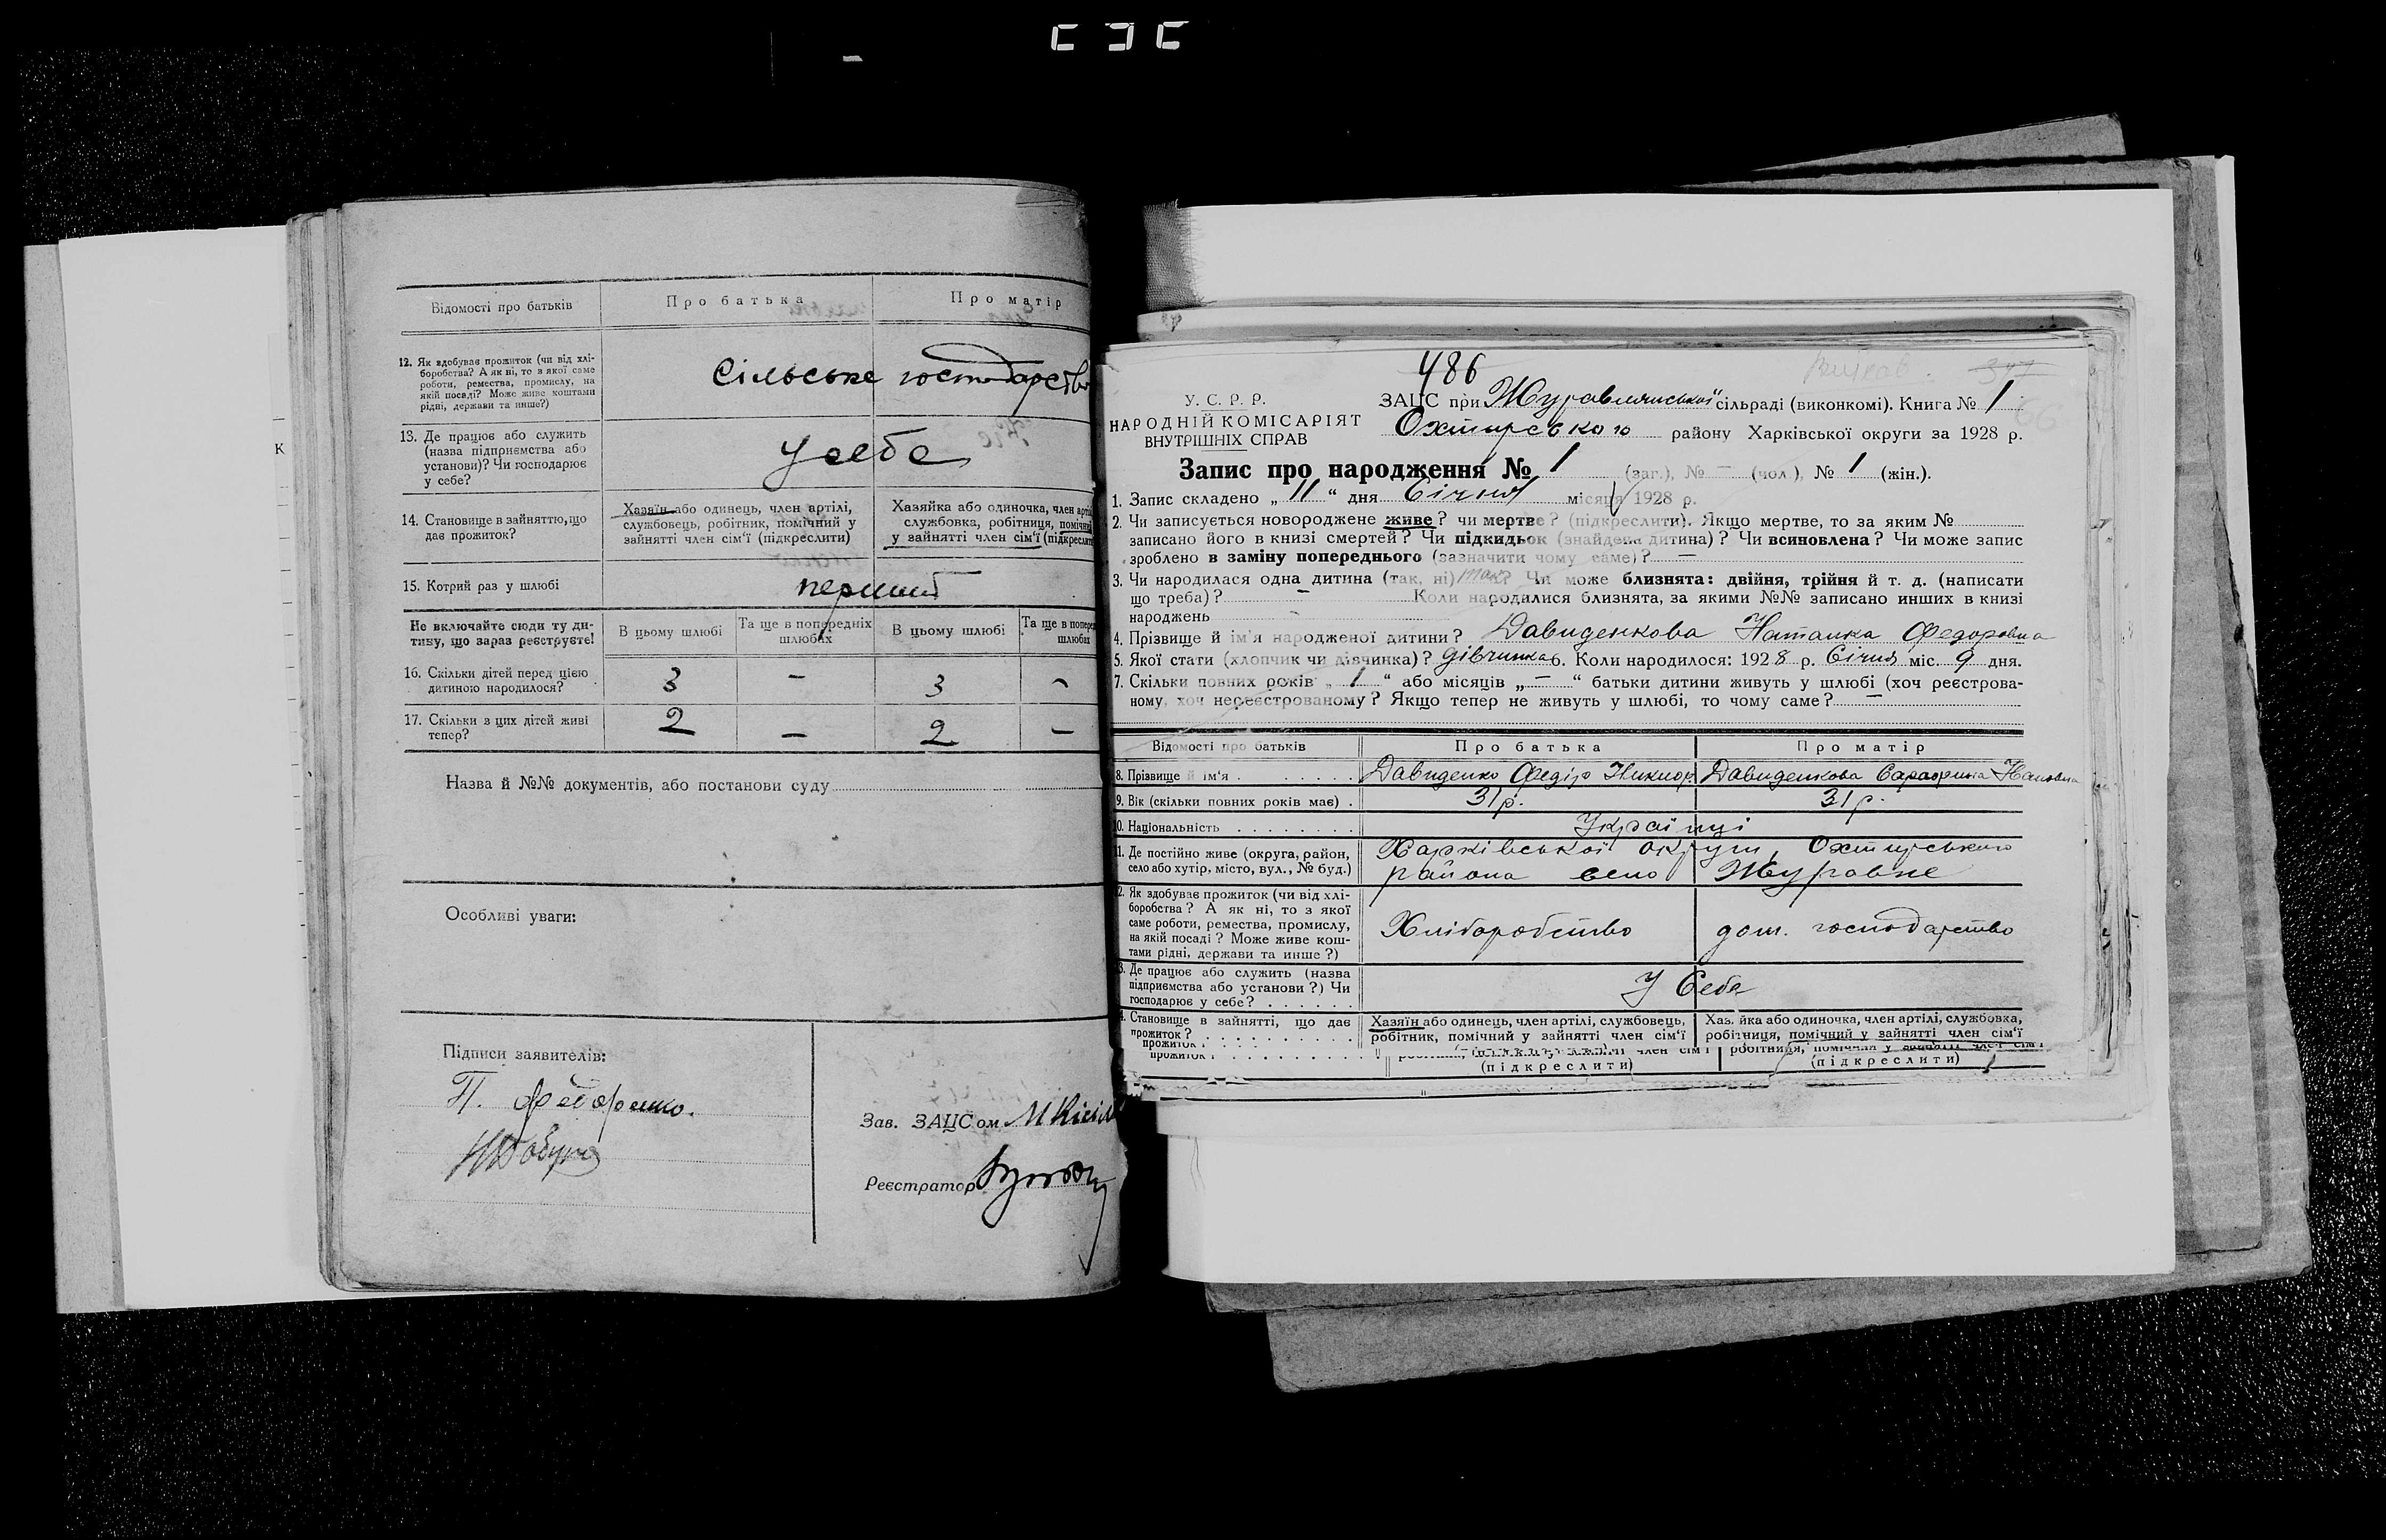 Відомості про батьків
Про батька
Про матір
12. Як здобуває прожиток (чи від хлі-
боробства? А як ні, то з якої саме
роботи, ремества, промислу, на
якій посаді? Може живе коштами
рідні, держави та инше?)
Сільське господарство
13. Де працює або служить
(назва підприємства або
установи)? Чи господарює
у себе?
У себе
14. Становище в зайняттю, що
дає прожиток?
Хазяїн або одинець, член артілі,
службовець, робітник, помічний у
зайнятті член сім'ї (підкреслити)
Хазяйка або одиночка, член арті
службовка, робітниця, помічний
у зайнятті член сім'ї (підкреслит
15. Котрий раз у шлюбі
перший
Не включайте сюди ту ди-
тину, що зараз реєструєте!
В цьому шлюбі
Та ще в попередніх
шлюбах
В цьому шлюбі
Та ще в поперед
шлюбах
16. Скільки дітей перед цією
дитиною народилося?
3 — 3 —
17. Скільки з цих дітей живі
тепер?
2 — 2 —
Назва й №№ документів, або постанови суду
Особливі уваги:
Підписи заявителів:
П. Федоренко.
Зав. ЗАЦСом
Реєстратор
К
486
У. С. Р. Р.
НАРОДНІЙ КОМІСАРІЯТ
ВНУТРІШНІХ СПРАВ
ЗАЦС при Журавлянської сільраді (виконкомі). Книга № 1
Охтирського району Харківської округи за 1928 р.
Запис про народження № 1 (заг.), № — (чол.), № 1 (жін.).
1. Запис складено „ 11 “ дня Січня місяця 1928 р.
2. Чи записується новороджене живе? чи мертве? (підкреслити). Якщо мертве, то за яким №
записано його в книзі смертей? Чи підкидьок (знайдена дитина)? Чи всиновлена? Чи може запис
зроблено в заміну попереднього (зазначити чому саме)? —
3. Чи народилася одна дитина (так, ні) так? Чи може близнята: двійня, трійня й т. д. (написати
що треба)? — Коли народилися близнята, за якими №№ записано инших в книзі
народжень —
4. Прізвище й ім'я народженої дитини? Давиденкова Наталка Федоровна
5. Якої стати (хлопчик чи дівчинка)? дівчинка 6. Коли народилося: 1928 р. Січня міс. 9 дня.
7. Скільки повних років „ 1 “ або місяців „ — “ батьки дитини живуть у шлюбі (хоч реєстрова-
ному, хоч нереєстрованому? Якщо тепер не живуть у шлюбі, то чому саме? —
Відомості про батьків
Про батька
Про матір
8. Прізвище й ім'я
Давиденко Федір Никиор
Давиденкова
9. Вік (скільки повних років має)
31 р.
31 р.
10. Національність
Українці
11. Де постійно живе (округа, район,
село або хутір, місто, вул., № буд.)
Харківської округи, Охтирського
района село Журавне
12. Як здобуває прожиток (чи від хлі-
боробства? А як ні, то з якої
саме роботи, ремества, промислу,
на якій посаді? Може живе кош-
тами рідні, держави та инше?)
Хліборобство
дом. господарство
13. Де працює або служить (назва
підприємства або установи?) Чи
господарює у себе?
У Себе
14. Становище в зайнятті, що дає
прожиток?
Хазяїн або одинець, член артілі, службовець,
робітник, помічний у зайнятті член сім'ї
Хазяйка або одиночка, член артілі, службовка,
робітниця, помічний у зайнятті член сім'ї
прожиток
прожиток
(підкреслити)
робітниця, помічний у зайнятті член сім'ї
(підкреслити)